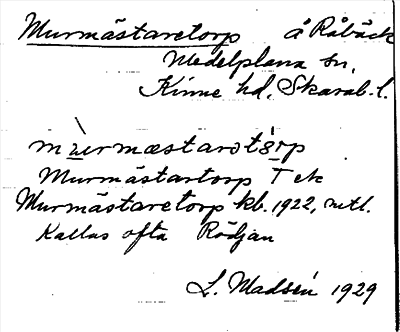 Murmästaretorp å Råbäck
Medelplana sn,
Kinne hd, Skarab. l.
Murmästartorp T ek
Murmästaretorp kb. 1922, mtl.
Kallas ofta Rödjan
L. Madsén 1929